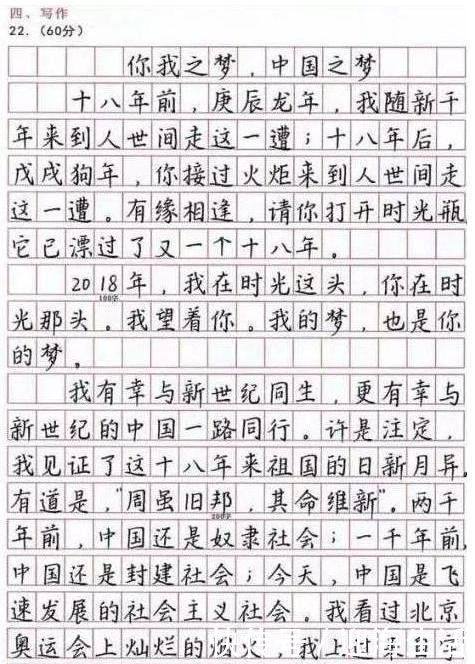 四、写作
22.（60分）
你我之梦，中国之梦
十八年前，庚辰龙年，我随新千
年来到人世间走这一遭；十八年后，
戊戌狗年，你接过火炬来到人世间走
这一遭。有缘相逢，请你打开时光瓶
它已漂过了又一个十八年。
2018年，我在时光这头，你在时
100字
光那头。我望着你。我的梦，也是你
的梦。
我有幸与新世纪同生，更有幸与
新世纪的中国一路同行。许是注定，
我见证了这十八年来祖国的日新月异。
有道是，"周虽旧邦，其命维新"。两千
200字
年前，中国还是奴隶社会；一千年前，
中国还是封建社会；今天，中国是飞
速发展的社会主义社会。我看过北京
奥运会上灿烂的